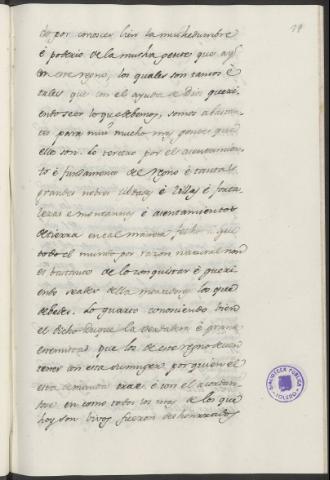 19
do por conoscer bien la muchedumbre
é poderio de la mucha gente que ay
en este regno, los quales son tantos é
tales que con el ayuda de Dios queri-
endo seer lo que debemos, somos abastan-
tes para muy mucho mas gentes que
ellos son. Lo tercero por el asentamien-
to é fundamento del regno é tantas
grandes nobres cibdades é Villas é forta-
lezas é montannas é asentamientos
de tierra en tal manera fecho á que
todo el mundo por razon natural non
es bastante de lo conquistar é queri-
endo usar della moradores lo que
deben. Lo quarto conosciendo bien
el dicho Duque la verdadera é grand
enemistad que los de este regno deuen
tener con esta extrangera por quien él
esta demanda trae é con el acordan-
dose en como todos los mas de los que
hoy son vivos fueron deshonrrados
BIBLIOTECA PUBLICA
TOLEDO